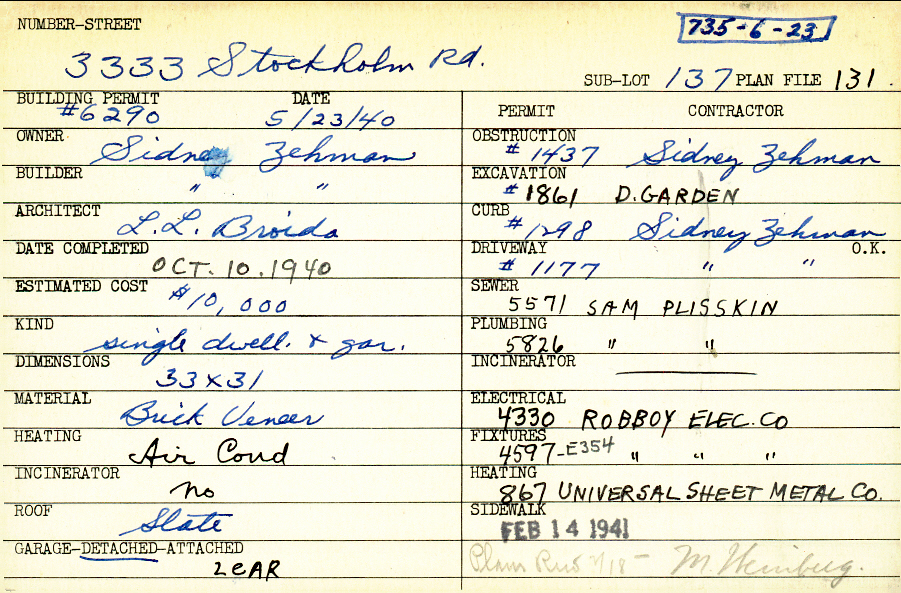 NUMBER-STREET
735-6-23
3333 Stockholm Rd.
SUB-LOT 137 PLAN FILE 131.
BUILDING PERMIT DATE
#6290 5/23/40
OWNER
Sidney Zehman
BUILDER
" "
ARCHITECT
L.L. Broida
DATE COMPLETED
OCT. 10. 1940
ESTIMATED COST
$10,000
KIND
single dwell. & gar.
DIMENSIONS
33x31
MATERIAL
Brick Veneer
HEATING
Air Cond
INCINERATOR
no
ROOF
Slate
GARAGE-DETACHED-ATTACHED
2 CAR
PERMIT CONTRACTOR
OBSTRUCTION
# 1437 Sidney Zehman
EXCAVATION
# 1861 D. GARDEN
CURB
# 1298 Sidney Zehman
DRIVEWAY O.K.
# 1177 " "
SEWER
5571 SAM PLISSKIN
PLUMBING
5826 " "
INCINERATOR
ELECTRICAL
4330 ROBBOY ELEC. CO
FIXTURES
4597-E354 " " "
HEATING
867 UNIVERSAL SHEET METAL CO.
SIDEWALK
FEB 14 1941
Plans M.